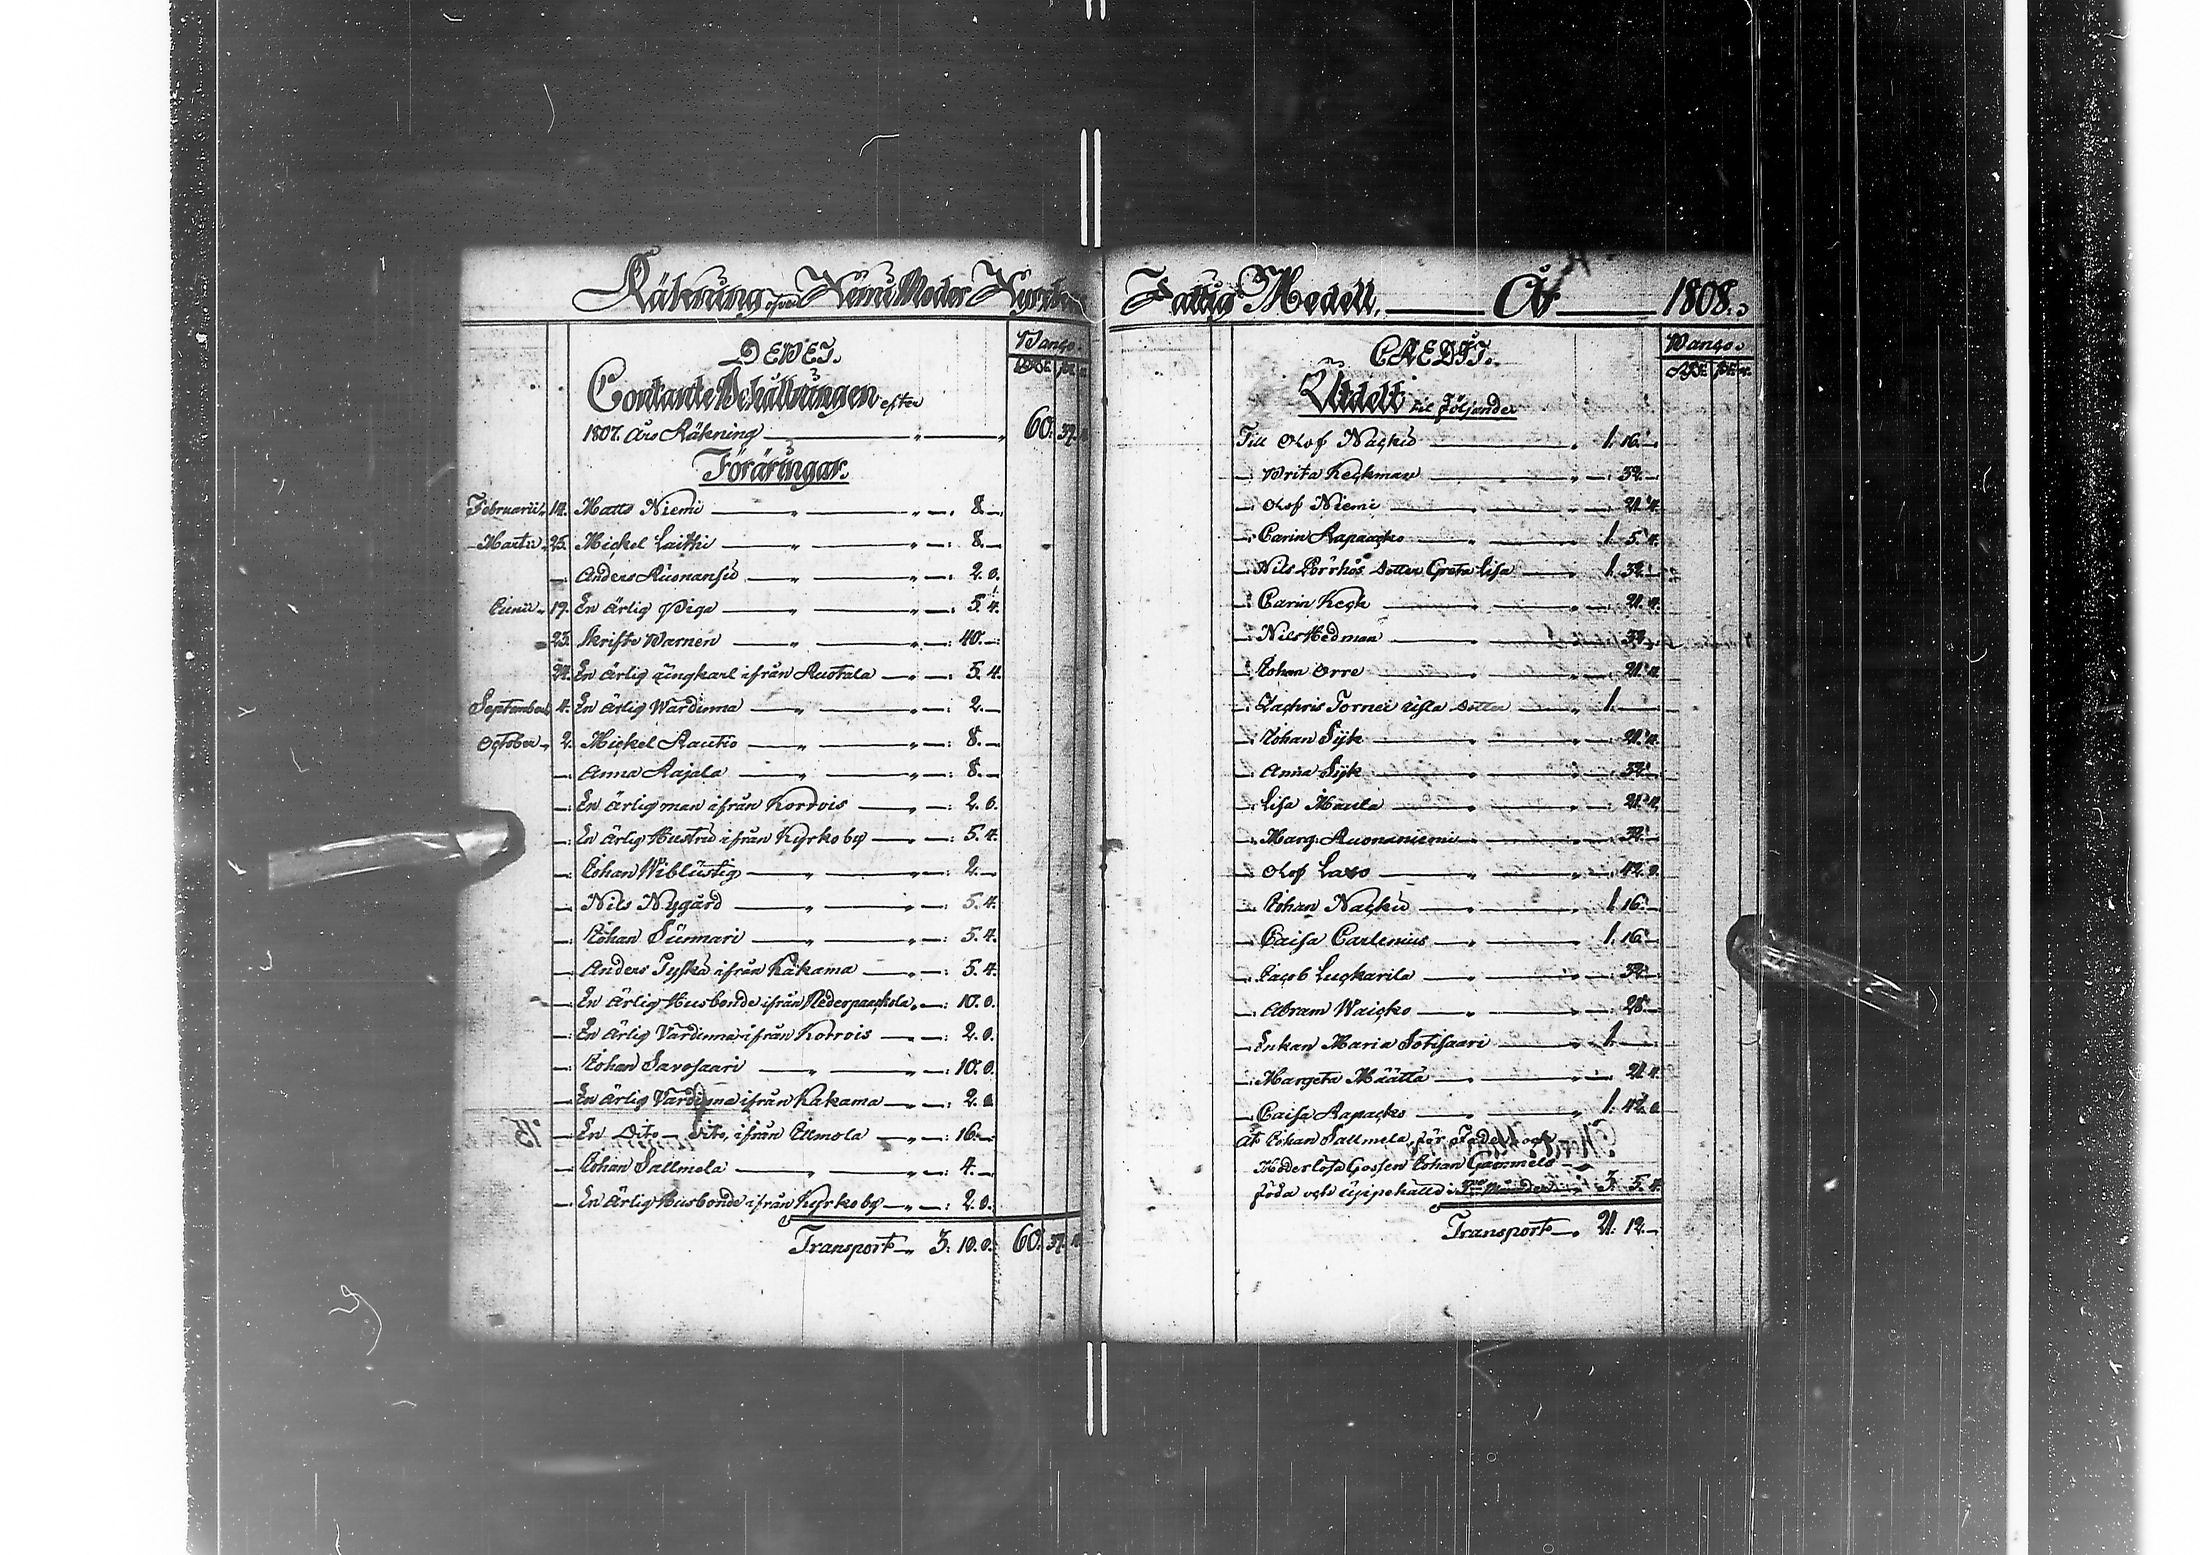 Räkning öfver Kemi Moder Kyrkas
DEBET.
Banco.
Contante Behållningen efter
1807. Års Räkning 60. 37.
Föräringar.
Februarii 14. Matts Niemi 8.
Martii 25. Mickel Laithi 8.
Anders Ruonansu 2. 8.
Junii 19. En ärlig Piga 5. 4.
23. Skrifte Barnen 40.
24. En ärlig ungkarl ifrån Ruotala 5. 4.
September 4. En ärlig Wärdinna 2.
October 2. Mickel Rautio 8.
Anna Rajala 8.
En ärlig man ifrån Korvois 2. 8.
En ärlig Hustru ifrån Kyrkoby 5. 4.
Johan Wiblustig 2.
Nils Nygård 5. 4.
Johan Sunnari 5. 4.
Anders Tyskä ifrån Kakama 5. 4.
En ärlig Husbonde ifrån Nederpaackola 10. 8.
En ärlig Värdinna ifrån Korvois 2. 8.
Johan Savosaari 10. 8.
En ärlig Värdinna ifrån Kakama 2. 8.
En Dito Dito, ifrån Ilmola 16.
Johan Sallmela 4.
En ärlig Husbonde ifrån Kyrkoby 2. 8.
Transport 3. 10. 8. 60. 37.
Fattig Medell. År 1808.
CREDIT.
Banco.
Utdelt til följande
Till Olof Nackū 1. 16.
Brita Keckman 32.
Olof Niemi 21. 4.
Carin Rapacko 1. 5. 4.
Nils Pörhös Dotter Greta Lisa 1. 32.
Carin Keck 21. 4.
Nils Hedman 32.
Johan Orre 21. 4.
Zachris Tornei Dotter 1.
Johan Sijk 21. 4.
Anna Sijk 32.
Lisa Maula 21. 4.
Marg. Ruonaniemi 32.
Olof Laxo 42. 8.
Johan Nackū 1. 16.
Caisa Carlenius 1. 16.
Jacob Luckarila 32.
Abram Waicko 28.
Enkan Maria Sotisaari 1.
Margeta Määttä 21. 4.
Caisa Rapacko 1. 42. 8.
åt Johan Sallmela för Fader och
Moderlösa Gossen Johan Gammels
föda och uppehälle 3. 5. 4.
Transport 21. 12.